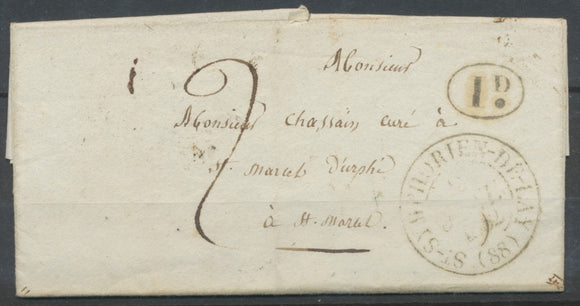 Monsieur
1 D.
2
Monsieur chassain curé à
St. Marcel d'urphé
à St. Marcel.
ST-SYMPHORIEN-DE-LAY (88)